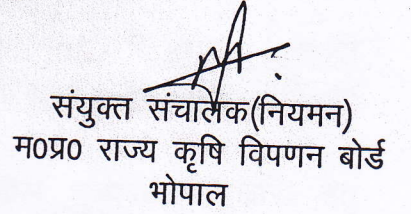 संयुक्त संचालक(नियमन)
म0प्र0 राज्य कृषि विपणन बोर्ड
भोपाल